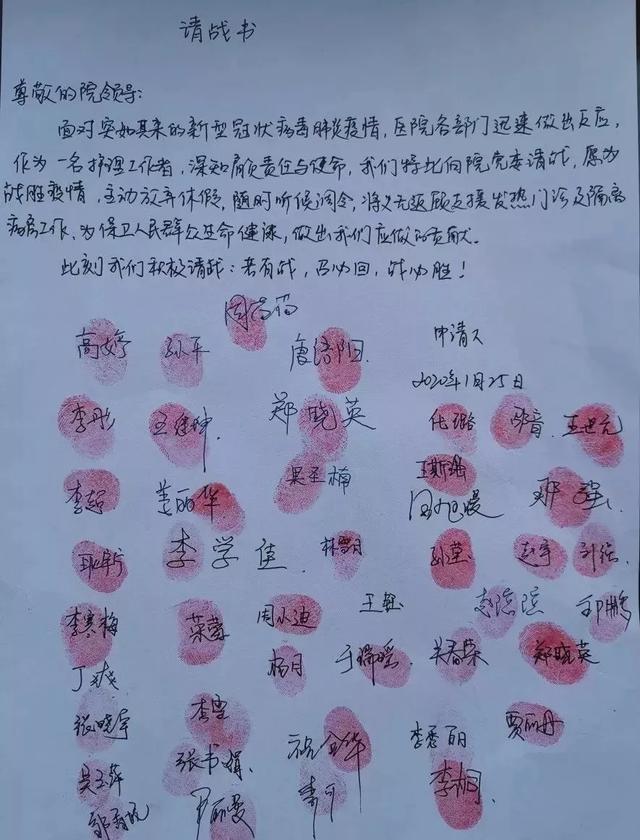 请战书
尊敬的院领导:
面对突如其来的新型冠状病毒肺炎疫情,医院各部门迅速做出反应,
作为一名护理工作者,深知肩负责任与使命,我们特此向院党委请战,愿为
战胜疫情,主动放弃休假,随时听候调令,将义无返顾支援发热门诊及隔离
病房工作、为保卫人民群众生命健康,做出我们应做的贡献。
此刻我们积极请战:若有战,召必回,战必胜!
高婷 孙平 唐洛阳 申请人
2020年1月25日
李彤 郑晓英 化璐 王世元
李超 姜丽华 吴圣楠 王斯璐
李学佳 林雪月 孙莹 赵宇
李寒梅 菜蓉 周小迪 王钰
丁爽 杨月 于瑞瑶 关春荣 郑晓英
张晓军 李雪 李秀丽 贾丽丹
吴玉萍 张书娟 祝金华 李桐
罗丽曼